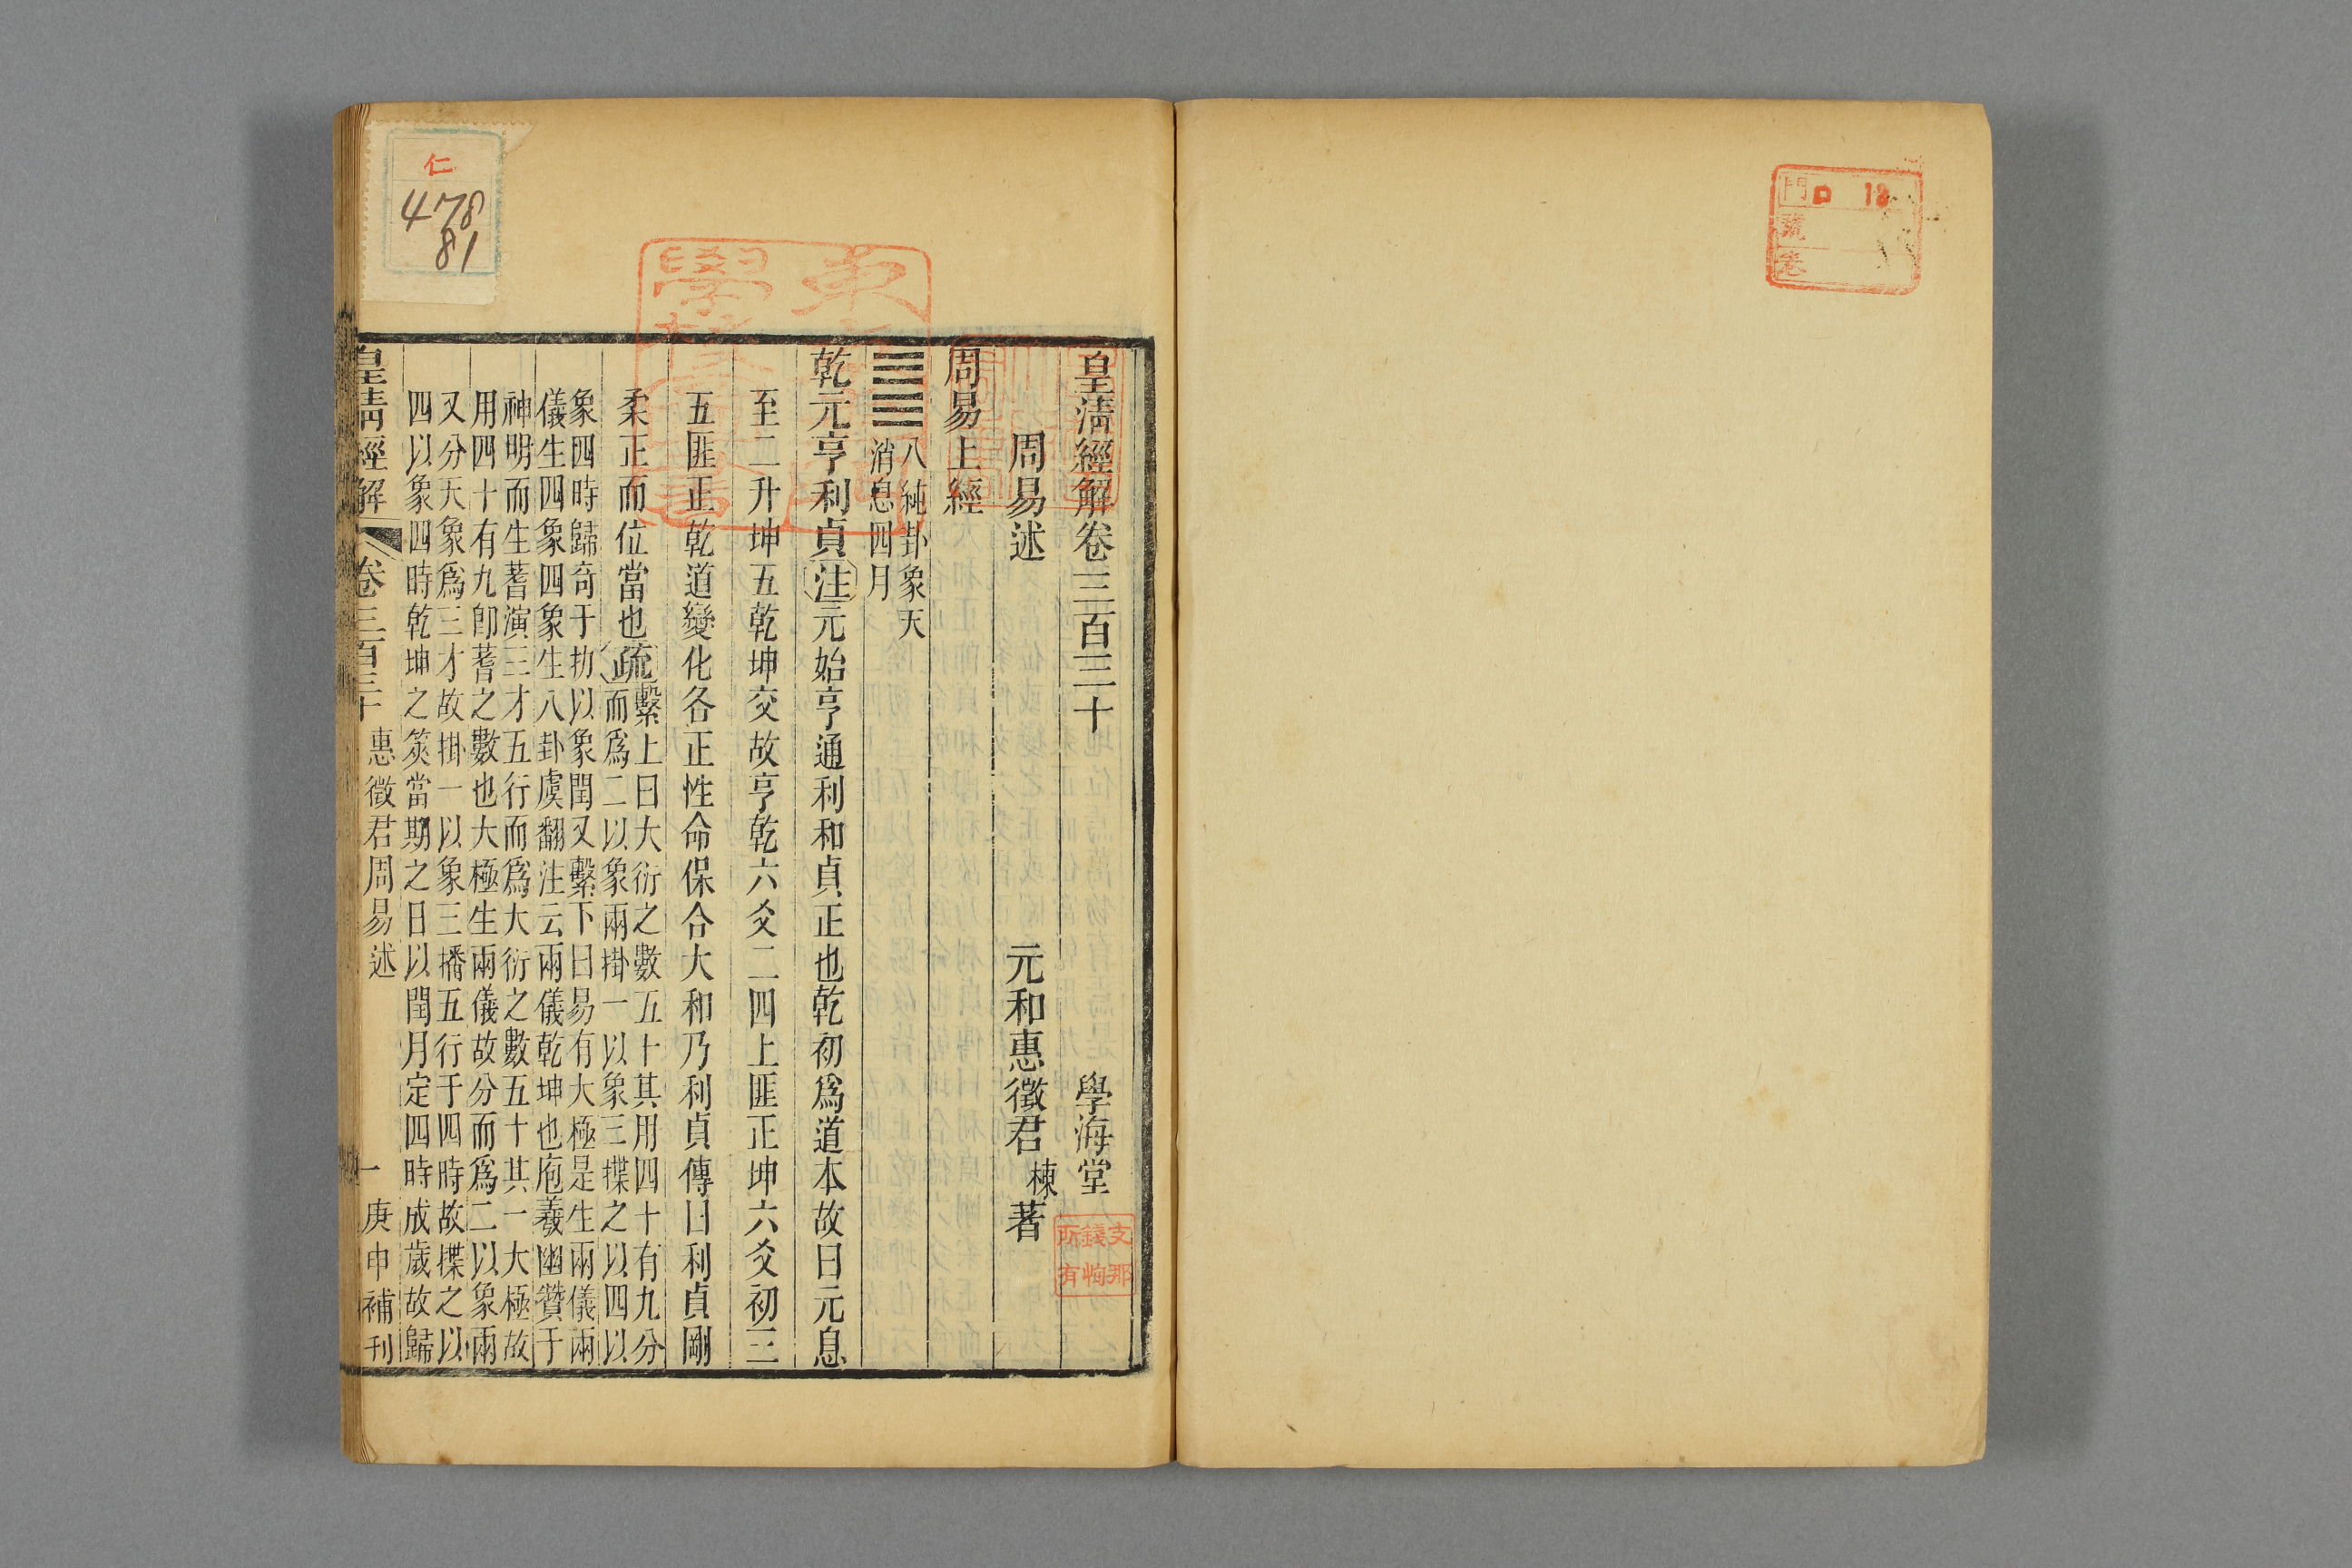 門 口 18
號
卷
皇清經解卷三百三十 學海堂
周易述 元和惠徵君棟著
周易上經
八純卦象天
消息四月
乾元亨利貞注元始亨通利和貞正也乾初爲道本故曰元息
至二升坤五乾坤交故亨乾六爻二四上匪正坤六爻初三
五匪正乾道變化各正性命保合大和乃利貞傳曰利貞剛
柔正而位當也疏繫上曰大衍之數五十其用四十有九分
而爲二以象兩掛一以象三揲之以四以
象四時歸奇于扐以象閏又繫下曰易有大極是生兩儀兩
儀生四象四象生八卦虞翻注云兩儀乾坤也庖羲幽贊于
神明而生蓍演三才五行而爲大衍之數五十其一大極故
用四十有九卽蓍之數也大極生兩儀故分而爲二以象兩
又分天象爲三才故掛一以象三播五行于四時故揲之以
四以象四時乾坤之筴當期之日以閏月定四時成歲故歸
皇清經解 卷三百三十 惠徵君周易述 一 庚申補刊
支那
錢恂
所有
仁
478
81